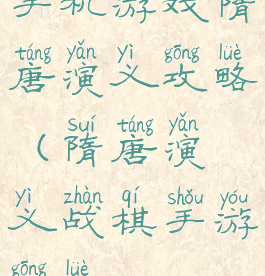 手机游戏隋
táng yǎn yì gōng lüè
唐演义攻略
suí táng yǎn
（隋唐演
yì zhàn qí shǒu yóu
义战棋手游
gōng lüè